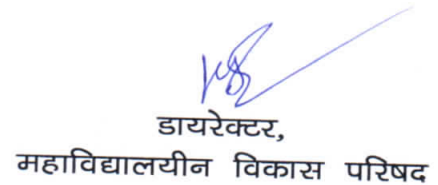 डायरेक्टर,
महाविद्यालयीन विकास परिषद